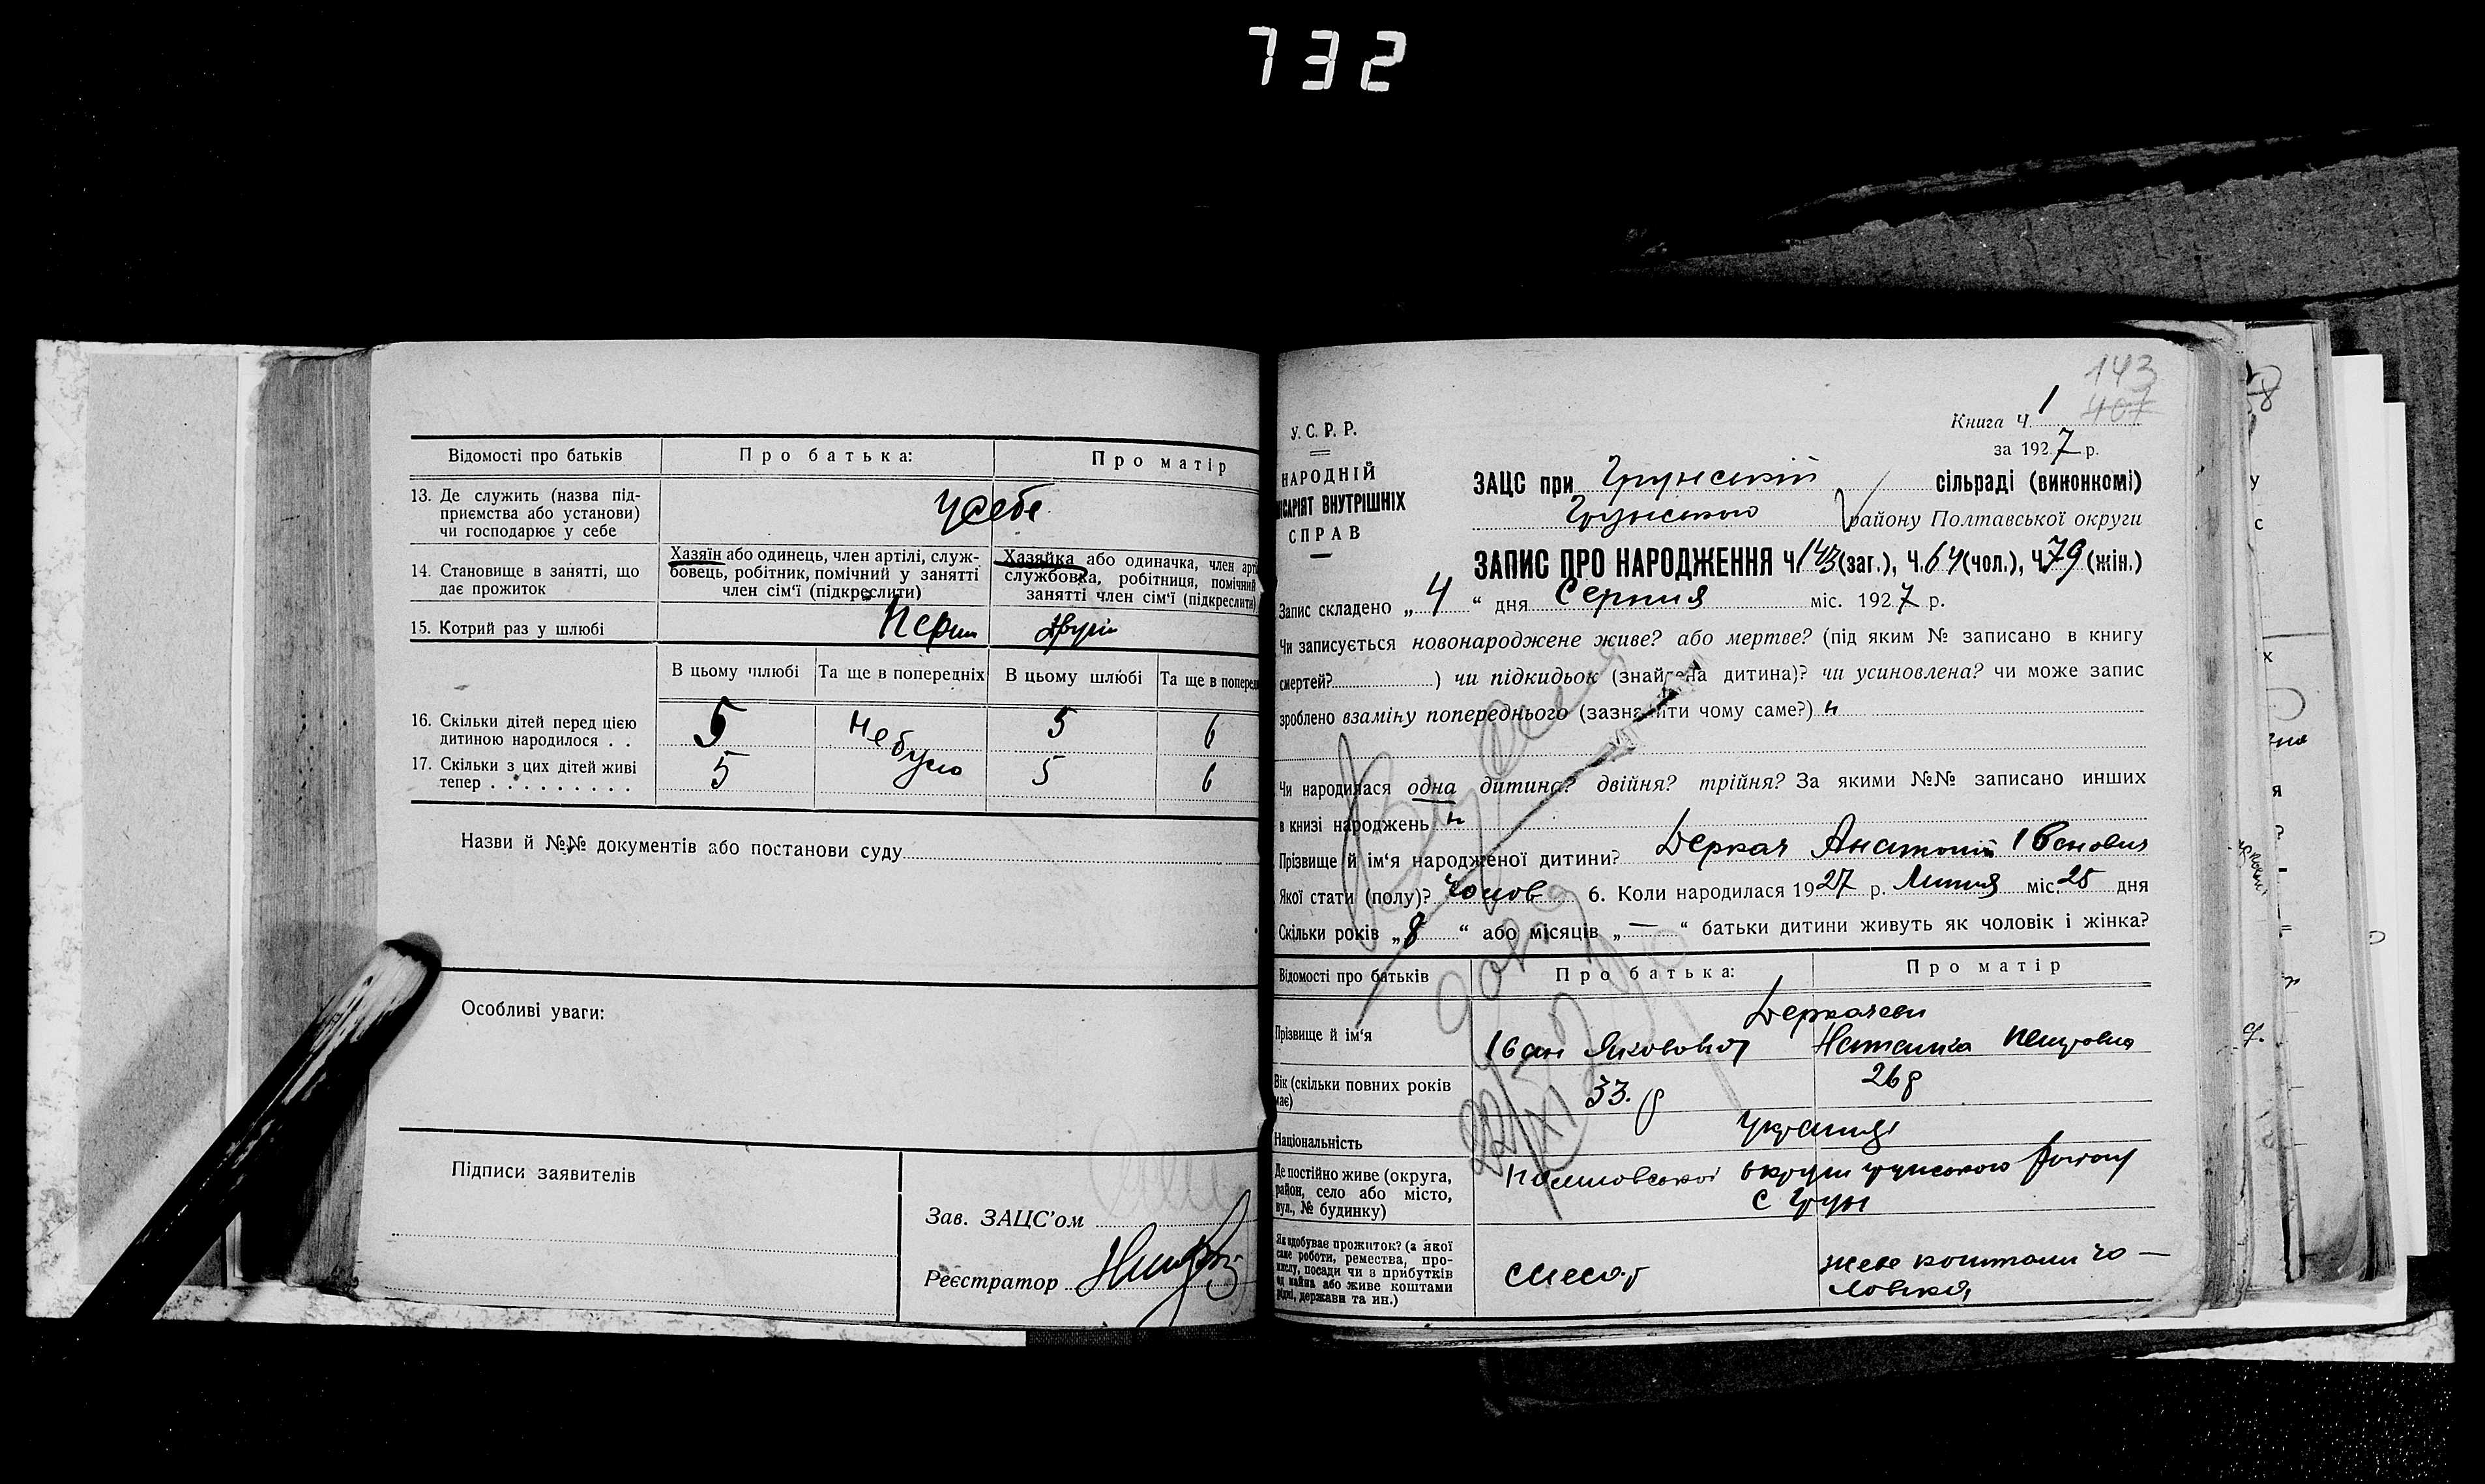 732
Відомості про батьків
Про батька:
Про матір
13. Де служить (назва під-
приємства або установи)
чи господарює у себе
усебе
14. Становище в занятті, що
дає прожиток
Хазяїн або одинець, член артілі, служ-
бовець, робітник, помічний у занятті
член сім'ї (підкреслити)
Хазяйка або одиначка, член арті
службовка, робітниця, помічний
занятті член сім'ї (підкреслити)
15. Котрий раз у шлюбі
Перш
другий
В цьому шлюбі
Та ще в попередніх
В цьому шлюбі
Та ще в поперед
16. Скільки дітей перед цією
дитиною народилося . .
5
не було
5
6
17. Скільки з цих дітей живі
тепер . . . . . . . . .
5
5
6
Назви й №№ документів або постанови суду
Особливі уваги:
Підписи заявителів
Зав. ЗАЦС'ом
Реєстратор
143
407
Книга Ч. 1
за 1927 р.
У. С. Р. Р.
НАРОДНІЙ
ІСАРІЯТ ВНУТРІШНІХ
СПРАВ
ЗАЦС при Грунській сільраді (виконкомі)
Грунського району Полтавської округи
ЗАПИС ПРО НАРОДЖЕННЯ Ч 143 (заг.), Ч. 64 (чол.), Ч. 79 (жін.)
Запис складено „4“ дня Серпня міс. 1927 р.
Чи записується новонароджене живе? або мертве? (під яким № записано в книгу
смертей? ) чи підкидьок (знайдена дитина)? чи усиновлена? чи може запис
зроблено взаміну попереднього (зазначити чому саме?) н
Чи народилася одна дитина? двійня? трійня? За якими №№ записано инших
в книзі народжень н
Прізвище й ім'я народженої дитини? Деркач Анатолій Іванович
Якої стати (полу)? чолов 6. Коли народилася 1927 р. Липня міс. 25 дня
Скільки років „8“ або місяців „—“ батьки дитини живуть як чоловік і жінка?
Відомості про батьків
Про батька:
Про матір
Деркачеви
Прізвище й ім'я
Іван Якович
Наталка Петровна
Вік (скільки повних років
має)
33. р
26 р
Національність
українці
Де постійно живе (округа,
район, село або місто,
вул., № будинку)
Полтавської округи грунського району
с Грунь
Як здобуває прожиток? (з якої
саме роботи, ремества, про-
мислу, посади чи з прибутків
од майна або живе коштами
рідні, держави та ин.)
слесар
живе коштами чо-
ловіка
22/XI